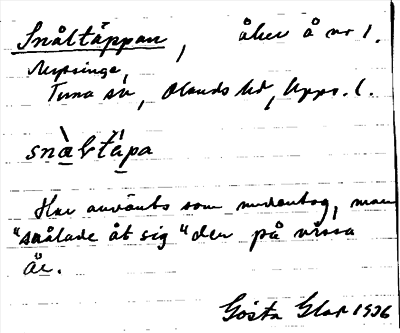 Snåltäppan, åker å nr 1.
Nysinge,
Tuna sn, Olands hd, Upps. l.
snà̱ltä̱pa
Har använts som                , man
"snålade åt sig" den på vissa
år.
Gösta Glar 1936